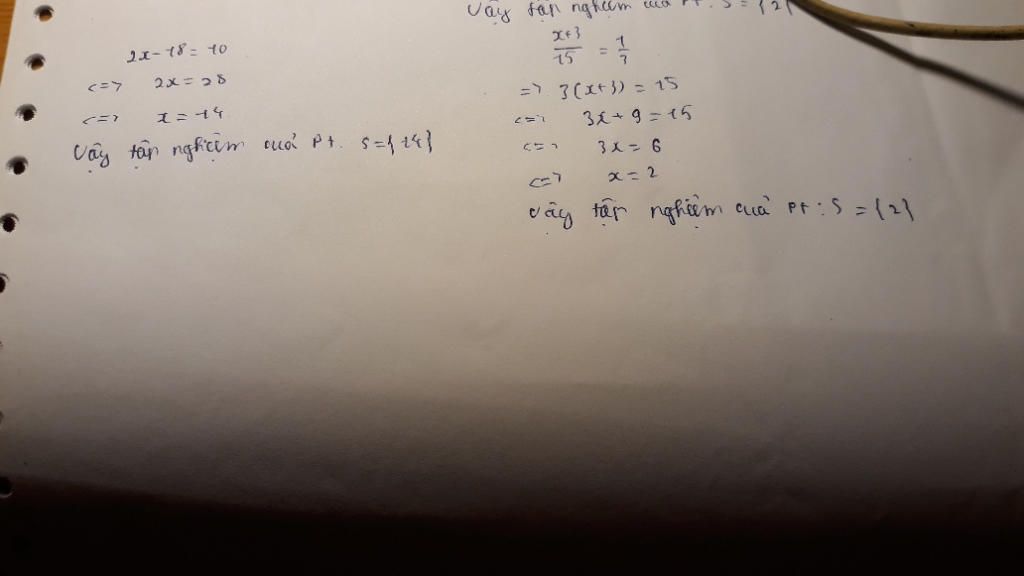 2x - 18 = 10
<=> 2x = 28
<=> x = 14
Vậy tập nghiệm của Pt. S = {14}
Vậy tập nghiệm của Pt: S = {2}
x+3/15 = 1/3
=> 3(x+3) = 15
<=> 3x + 9 = 15
<=> 3x = 6
<=> x = 2
Vậy tập nghiệm của Pt: S = {2}